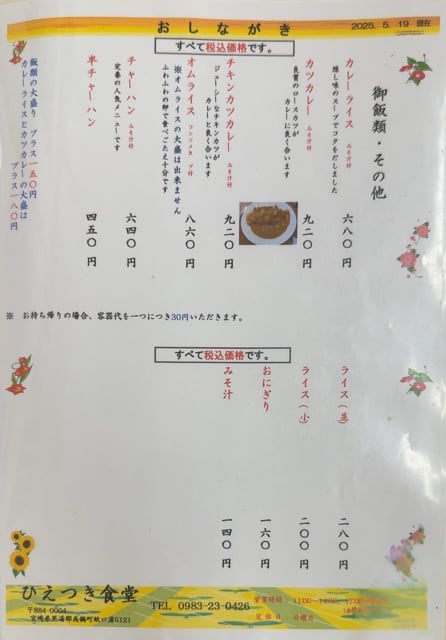 おしながき
2025. 5. 19 現在
すべて税込価格です。
御飯類・その他
カレーライス みそ汁付 六八〇円
隠し味のスープでコクをだしました
カツカレー みそ汁付 九二〇円
良質のロースカツが
カレーに良く合います
チキンカツカレー みそ汁付 九二〇円
ジューシーなチキンカツが
カレーと良く合います
オムライス コンソメスープ付 八六〇円
※オムライスの大盛は出来ません
ふわふわの卵で食べごたえ十分です
チャーハン みそ汁付 六四〇円
定番の人気メニューです
半チャーハン 四五〇円
飯類の大盛り プラス一五〇円
カレーライスとカツカレーの大盛は
プラス一八〇円
※ お持ち帰りの場合、容器代を一つにつき30円いただきます。
すべて税込価格です。
ライス(並) 二八〇円
ライス(小) 二〇〇円
おにぎり 一六〇円
みそ汁 一四〇円
ひえつき食堂
〒884-0004
宮崎県児湯郡高鍋町蚊口浦5121
TEL 0983-23-0426
営業時間: 11:00~14:00、17:00
定休日: 日曜日